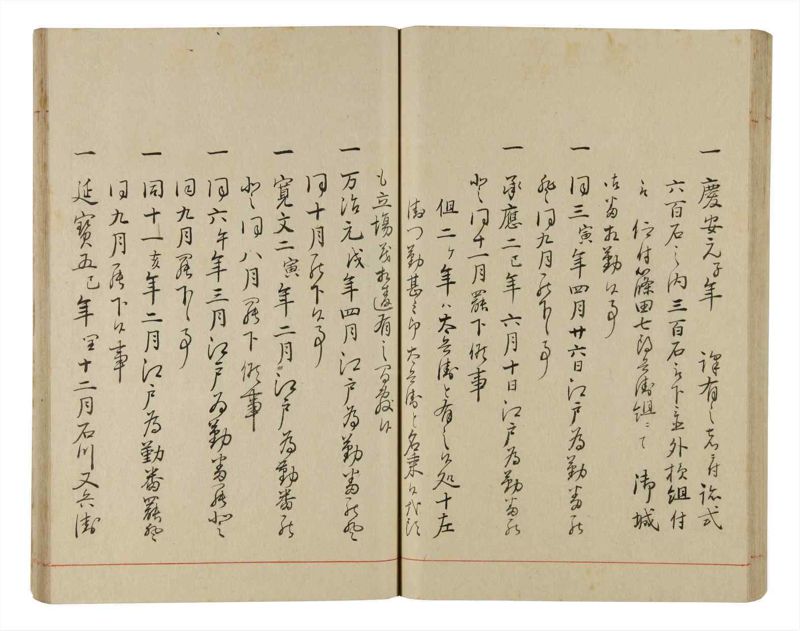 一 慶安元子年 譯有之
六百石之内三百石被下置外様組付
被 仰付篠田七郎兵衛組ニて 御城
御番相勤候事
一 同三寅年四月廿六日江戸為勤番罷
登同九月罷下候事
一 承應二巳年六月十日江戸為勤番罷
登同十一月罷下候事
但二ヶ年ハ太兵衛と有之候処十左
衛門勤 太兵衛と名乗候
も立場 相違有之
一 万治元戌年四月江戸為勤番罷登
同十月罷下候事
一 寛文二寅年二月江戸為勤番罷
登同八月罷下候事
一 同六午年三月江戸為勤番罷登
同九月罷下候事
一 同十一亥年二月江戸為勤番罷登
同九月罷下候事
一 延寶五巳年 十二月石川又兵衛